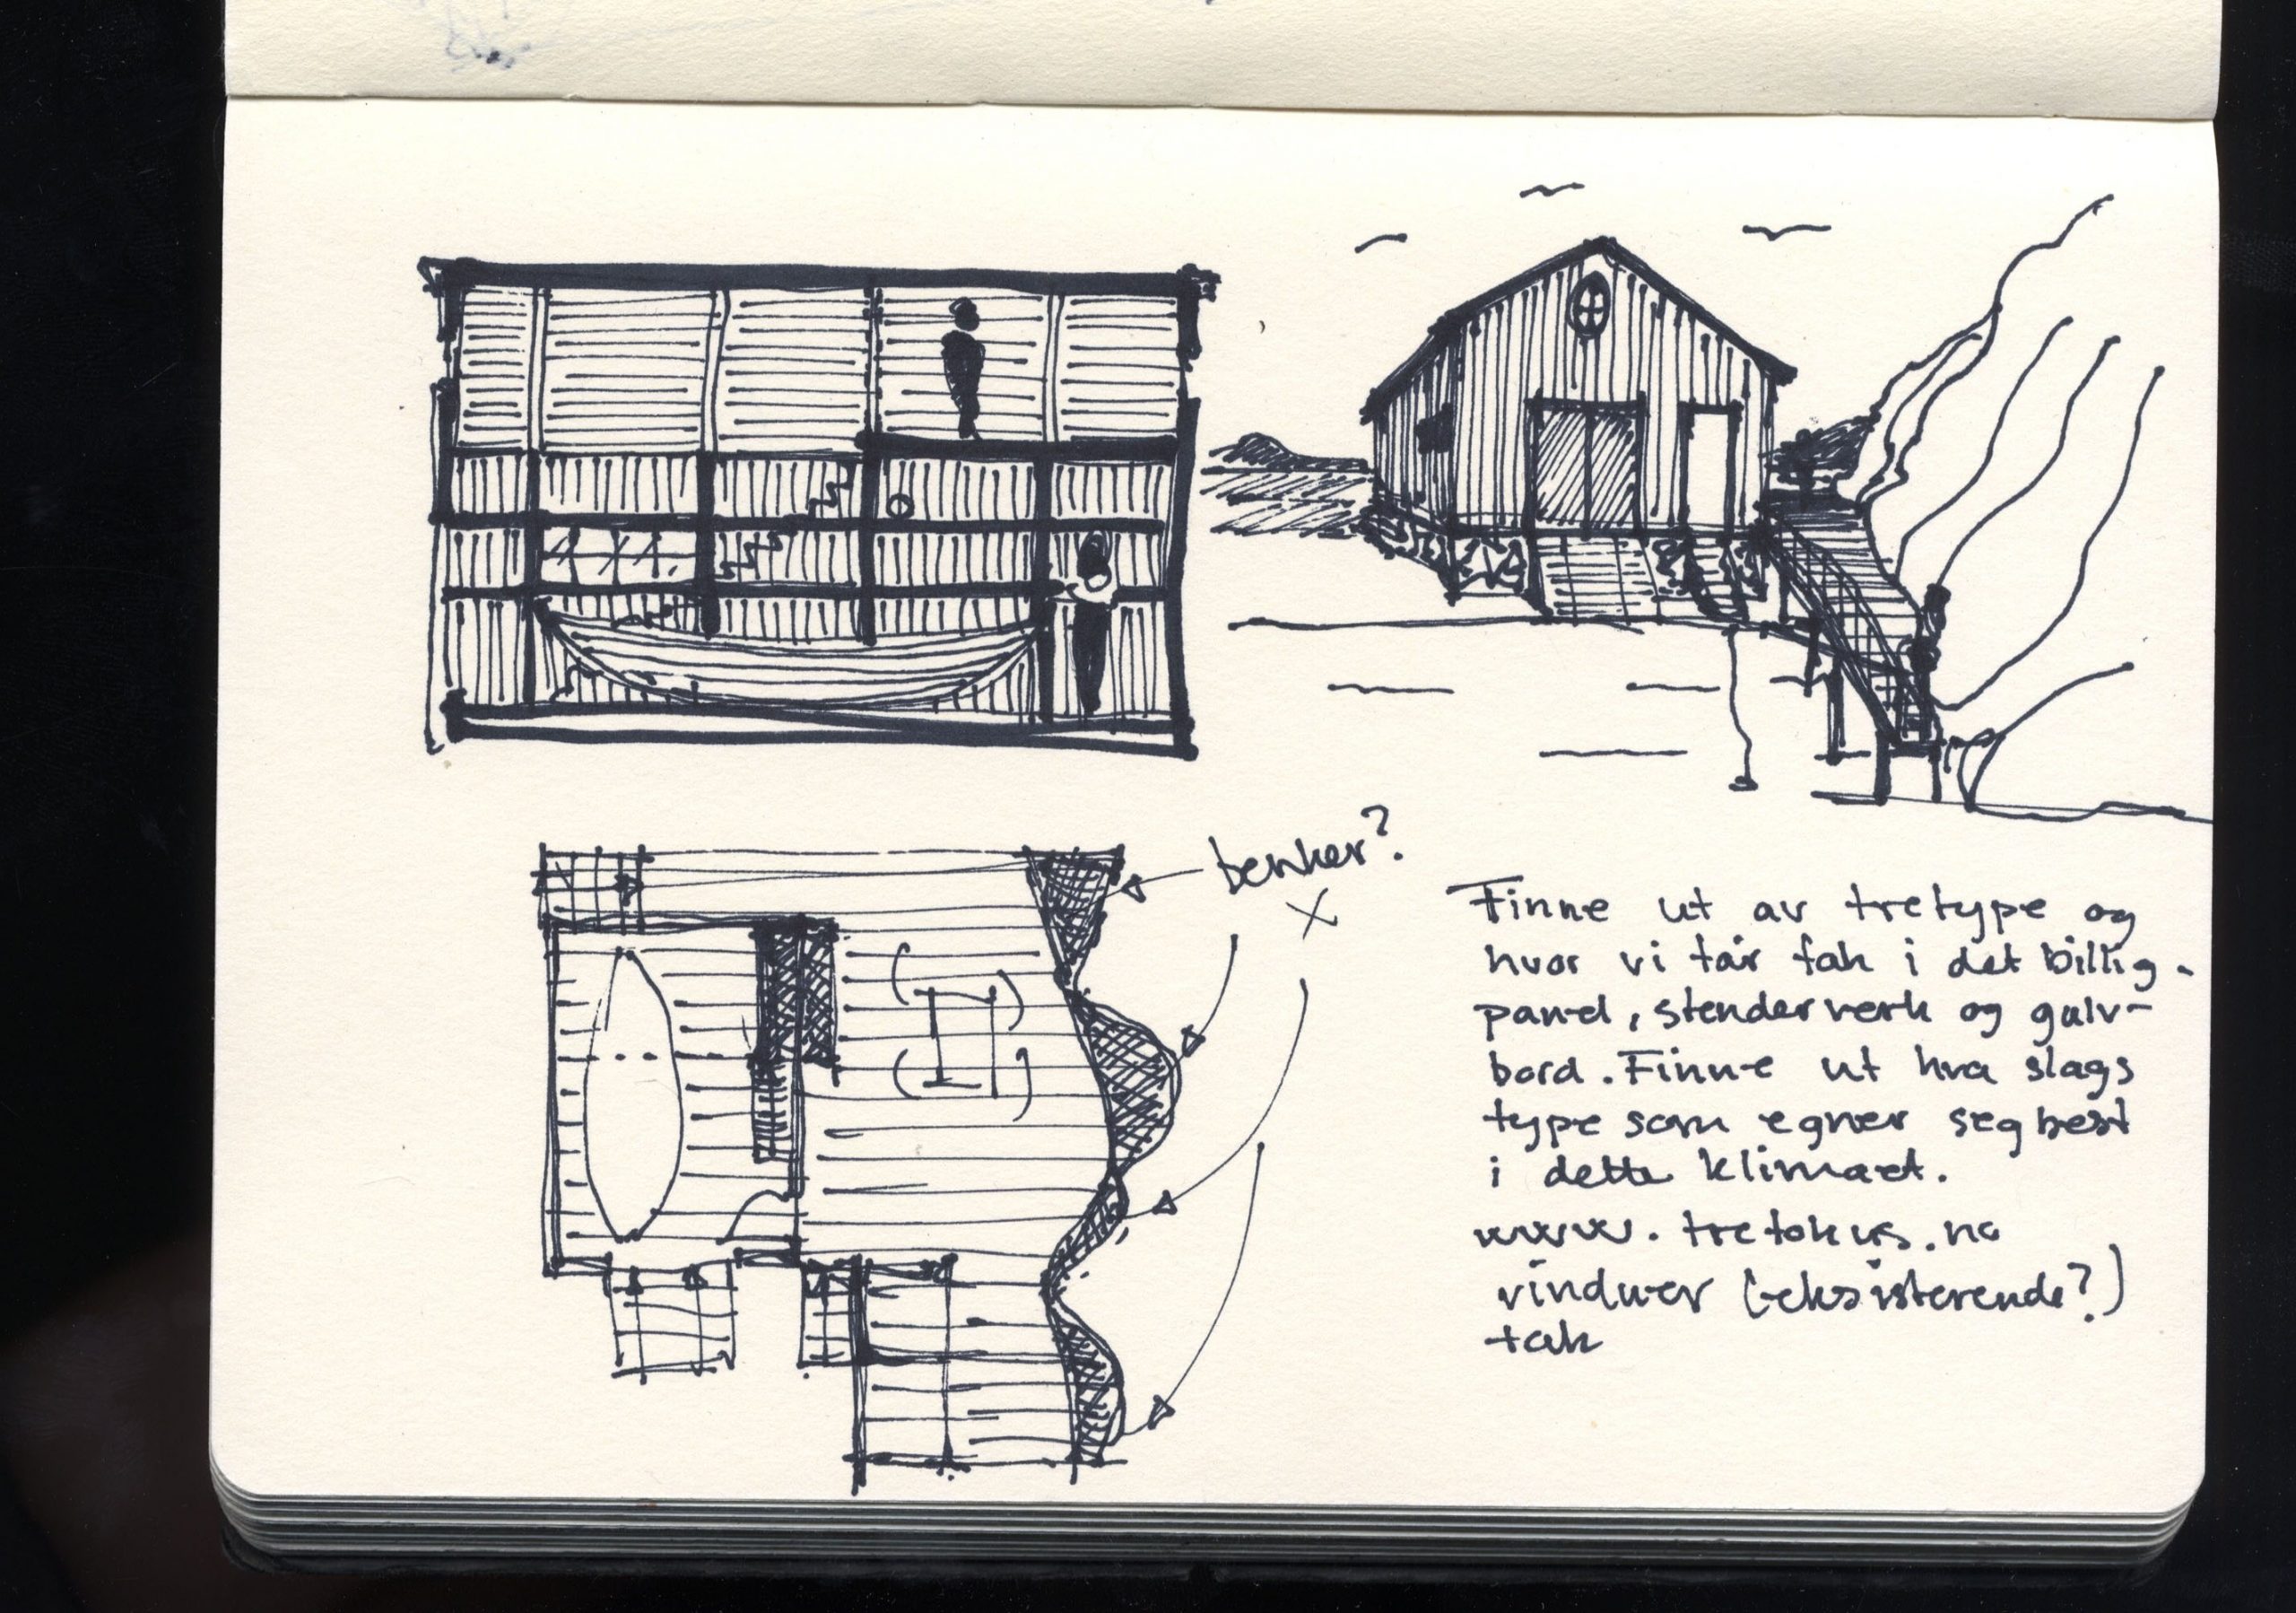 benker?
Finne ut av tretype og
hvor vi får tak i det billig.
panel, stenderverk og gulv-
bord. Finne ut hva slags
type som egner seg best
i dette klimaet.
www.trefokus.no
vinduer (eksisterende?)
tak